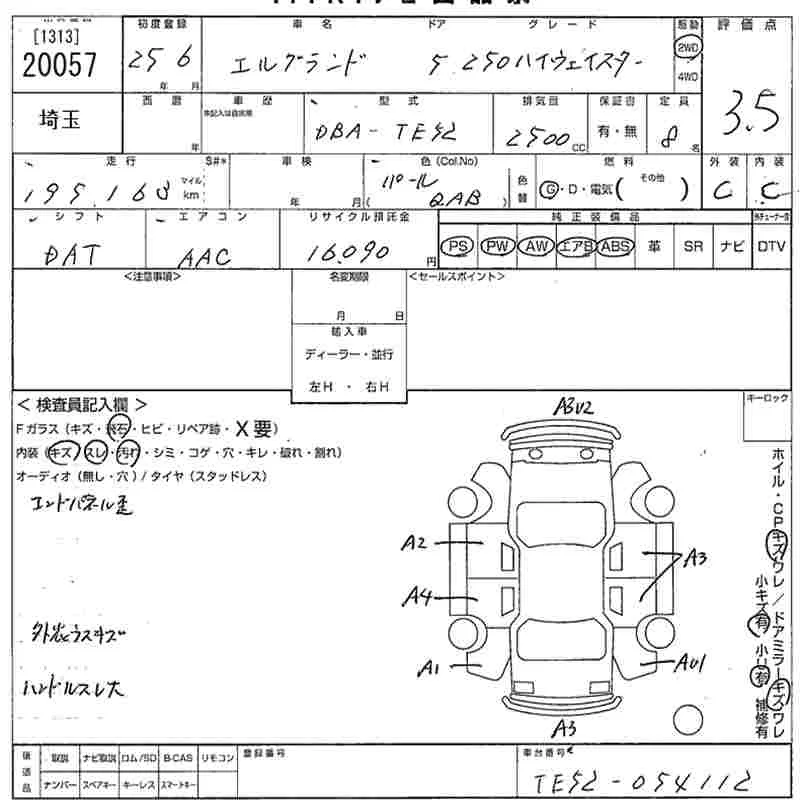 [1313]
20057
初度登録
25 6
年 月
車名
エルグランド
ドア
5
グレード
250ハイウェイスター
駆動
2WD
4WD
評価点
3.5
埼玉
西暦
年
車歴
未記入は自家用
型式
DBA-TE52
排気量
2500
CC
保証書
有・無
定員
8
名
走行
195,163
マイル
km
S#*
車検
年 月(
色(Col.No)
パール
QAB
)
色替
燃料
G・D・電気( その他 )
外装
C
内装
C
シフト
DAT
エアコン
AAC
リサイクル預託金
16,090
円
純正装備品
PS PW AW エアB ABS 革 SR ナビ
DTV
<注意事項>
名変期限
月 日
輸入車
ディーラー・並行
左H ・ 右H
<セールスポイント>
キーロック
<検査員記入欄>
Fガラス(キズ・飛石・ヒビ・リペア跡・X要)
内装(キズ/スレ・汚れ・シミ・コゲ・穴・キレ・破れ・割れ)
オーディオ(無し・穴)/タイヤ(スタッドレス)
エンドパネル歪
外装ウスキズ
ハンドルスレ大
ABU2
A2
A3
A4
A1
AU1
A3
ホイル・CPキズワレ/ドアミラーキズワレ
小キズ有 小U有 補修有
後送品
取説 ナビ取説 ロム/SD B-CAS リモコン
ナンバー スペアキー キーレス スマートキー
登録番号
車台番号
TE52-054112